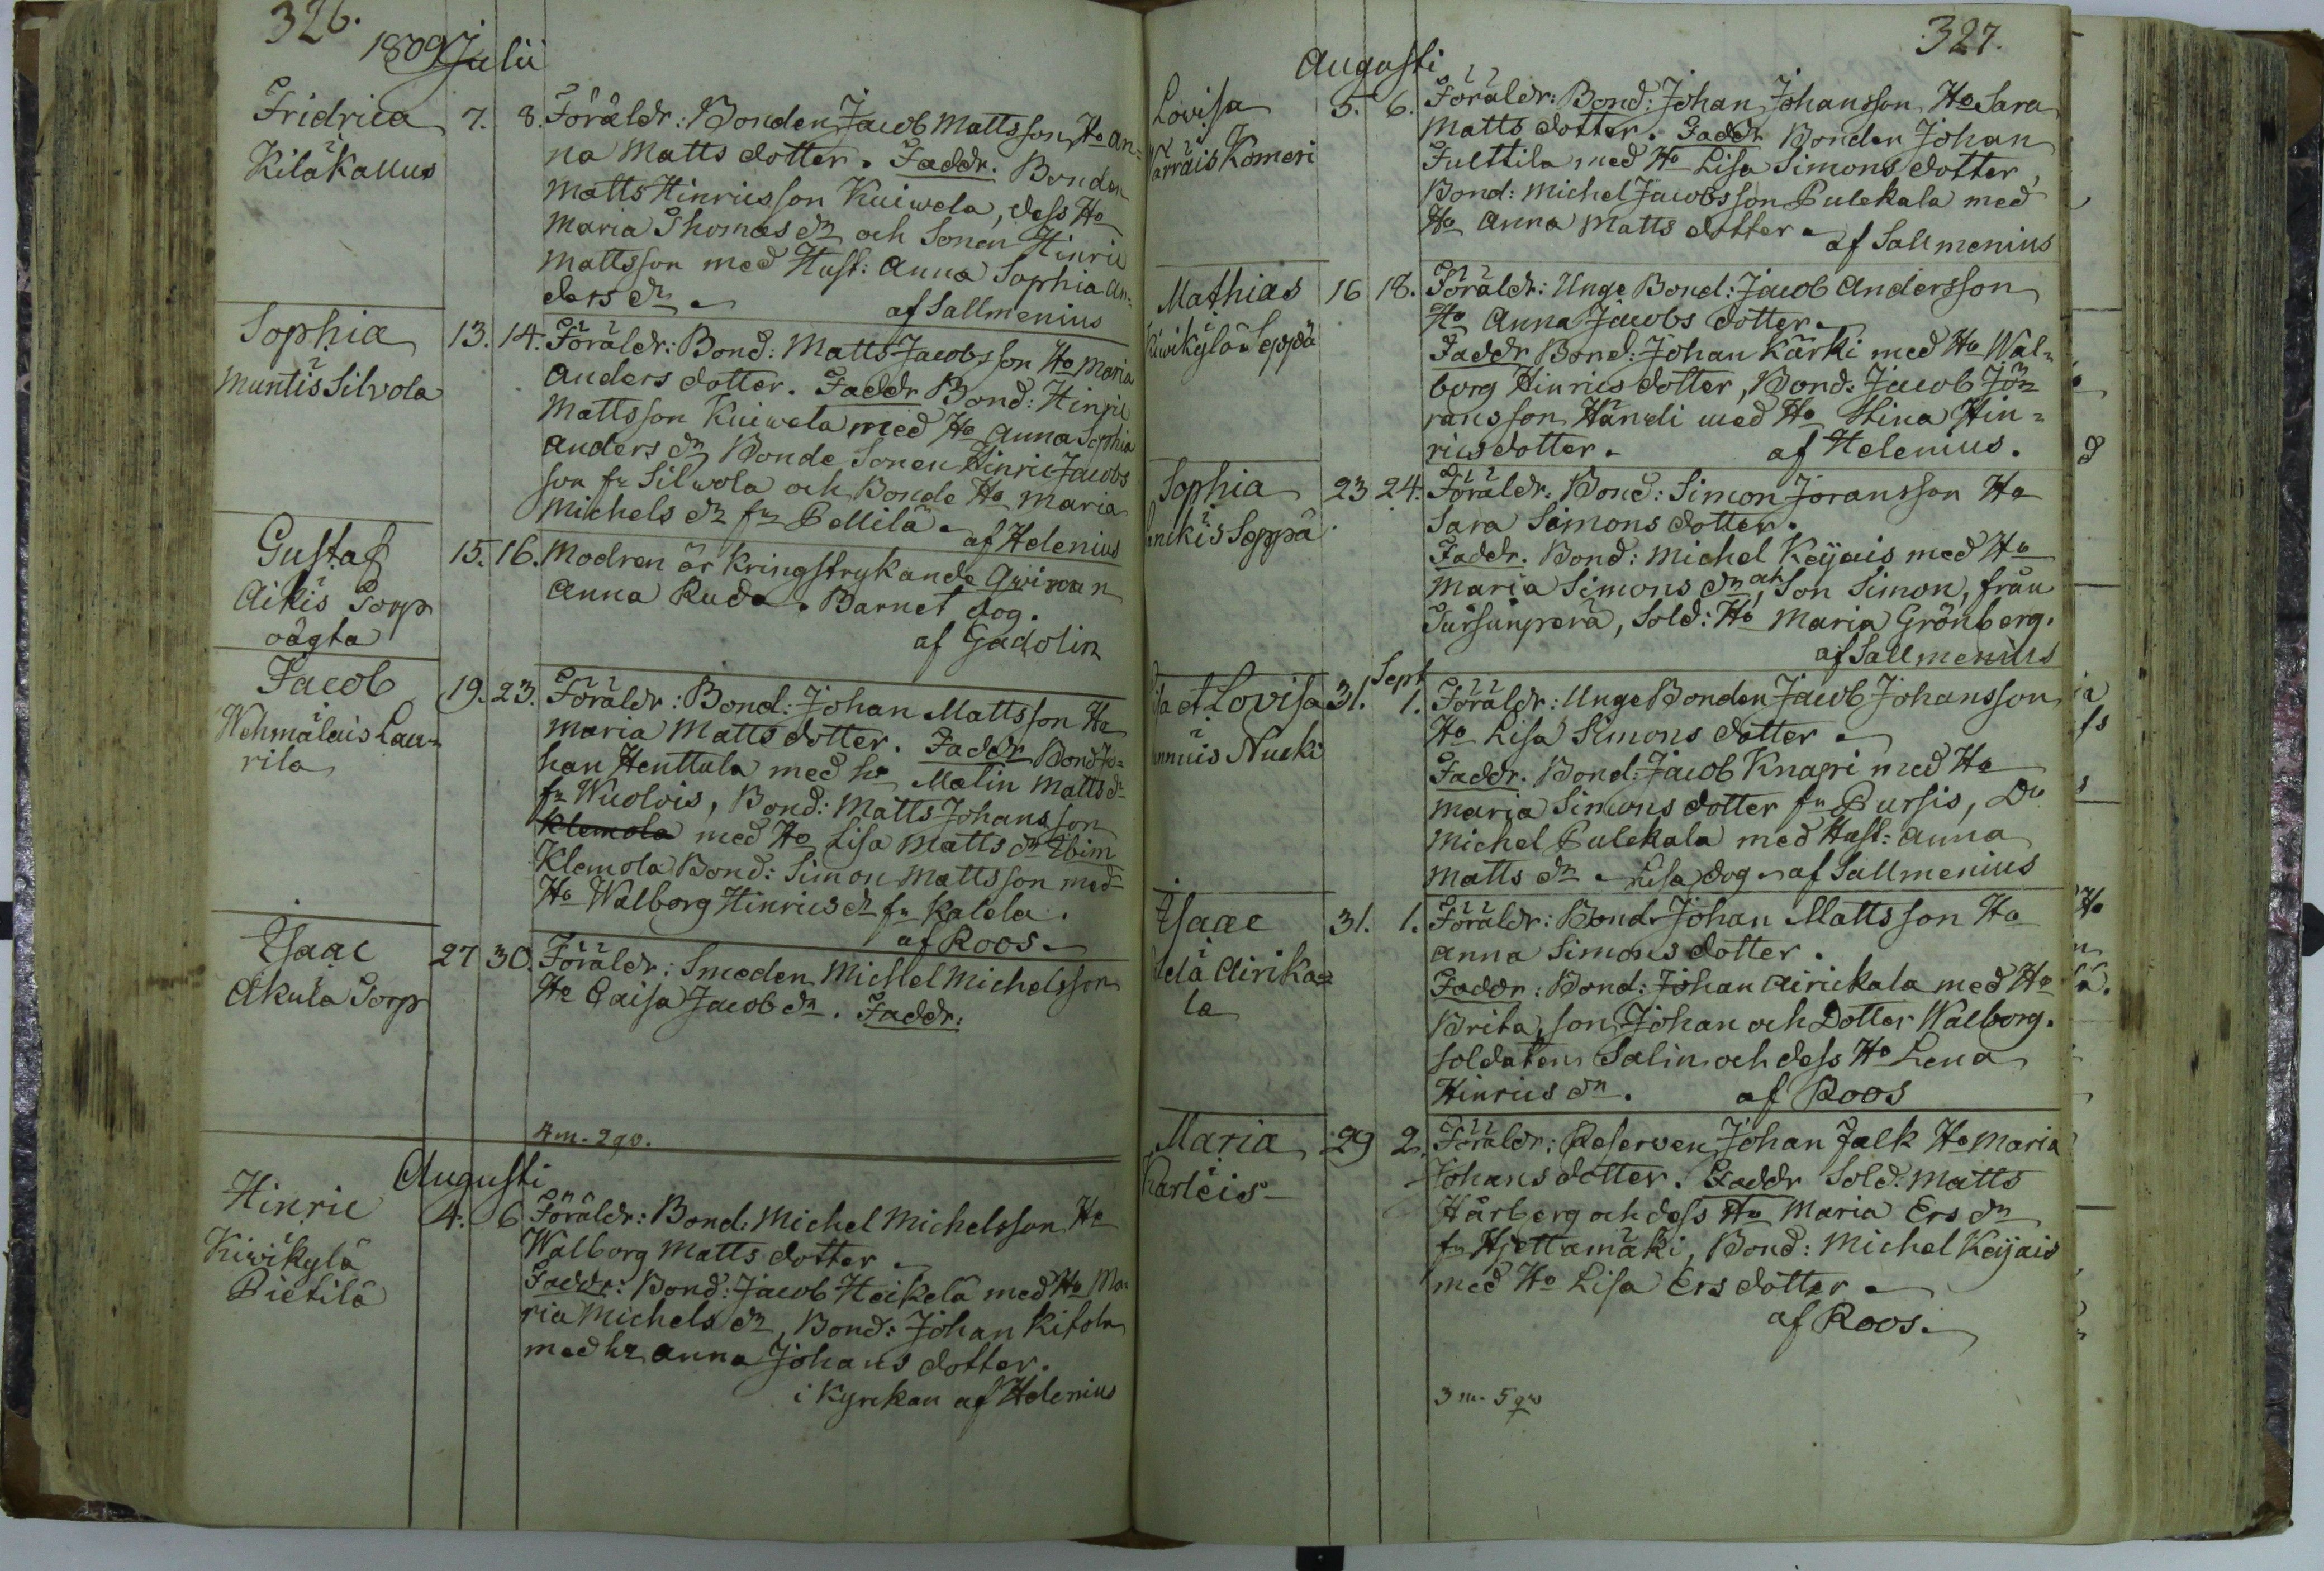 326.
1809 Julii
Fridrica 7. 8. Föräldr: Bonden Jacob Mattsson Ho An=
Kiläkallus
na Matts dotter. Faddr. Bonden
Matts Hinricsson Kuiwela, dess Ho
Maria Thomas dr och Sonen Hinric
Mattsson med Hust: Anna Sophia An=
ders dr
af Sallmenius
Sophia 13. 14. Föräldr: Bond: Matts Jacobsson Ho Maria
Muntis Silvola
Anders dotter. Faddr Bond: Hinric
Mattsson Kuiwela med Ho Anna Sophia
Anders dr Bonde Sonen Hinric Jacobs
son fr Silwola och Bonde Ho Maria
Michels dr fr Pellilä. af Helenius
Gustaf 15. 16. Modren är Kringstrykande Qwinnan
Aikis Torp
Anna Ruda. Barnet dog.
oägta
af Gadolin
Jacob 19. 23. Föräldr: Bond: Johan Mattsson Ho
Wehmälais Lau=
Maria Matts dotter. Faddr Bond Jo=
rila
han Henttula med ho Malin Matts dr
fr Wuolois, Bond: Matts Johansson
Klemola med Ho Lisa Matts dr Ibim
Klemola Bond: Simon Mattsson med
Ho Walborg Hinrics dr fr Kalela.
af Roos.
Isaac 27 30. Föräldr: Smeden Michel Michelsson
Äkulä Torp
Ho Caisa Jacob dr. Faddr:
4 m. 2 qv.
Augusti
Hinric 4. 6 Föräldr: Bond: Michel Michelsson Ho
Kiwikylä
Walborg Matts dotter
Pietilä
Faddr: Bond: Jacob Heikelä med Ho Ma=
ria Michels dr, Bond: Johan Kitola
med ho Anna Johans dotter.
i Kyrckan af Helenius
327.
Augusti
Lovisa 5. 6. Föräldr: Bond: Johan Johansson Ho Sara
Warrais Komeri
Matts dotter. Faddr. Bonden Johan
Julttila med Ho Lisa Simons dotter,
Bond: Michel Jacobsson Pulekala med
Ho Anna Matts dotter
af Sallmenius
Mathias 16 18. Föräldr: Unge Bond: Jacob Andersson
Kiwikylä Seppä
Ho Anna Jacobs dotter
Faddr Bond: Johan Kärki med Ho Wal=
borg Hinrics dotter, Bond: Jacob Jö=
ransson Händi med Ho Stina Hin=
ricsdotter.
af Helenius.
Sophia 23 24. Föräldr. Bond: Simon Joransson Ho
Sara Simons dotter.
Faddr. Bond: Michel Keijais med Ho
Maria Simons dr, och Son Simon, från
Tursunperä, Sold: Ho Maria Grönberg.
af Sallmenius
Sept
et Lovisa 31. 1. Föräldr: Unge Bonden Jacob Johansson
Nucki
Ho Lisa Simons dotter
Faddr. Bond: Jacob Knapri med Ho
Maria Simons dotter fr Pursis, Do
Michel Pulekala med Hust: Anna
Matts dr Lisa dog af Sallmenius
Isaac 31. 1. Föräldr: Bond: Johan Mattsson Ho
Airika=
Anna Simons dotter.
la
Faddr: Bond: Johan Airickala med Ho
Brita, son Johan och Dotter Walborg.
Soldaten Salin och dess Ho Lena
Hinrics dr.
af Roos
Maria 29 2. Föräldr: Reserven Johan Falk Ho Maria
Karleis
Johans dotter. Faddr Sold: Matts
Hårberg och dess Ho Maria Ers dr
fr Hjettamäki, Bond: Michel Keijais
med Ho Lisa Ers dotter
af Roos.
3 m. 5 qv